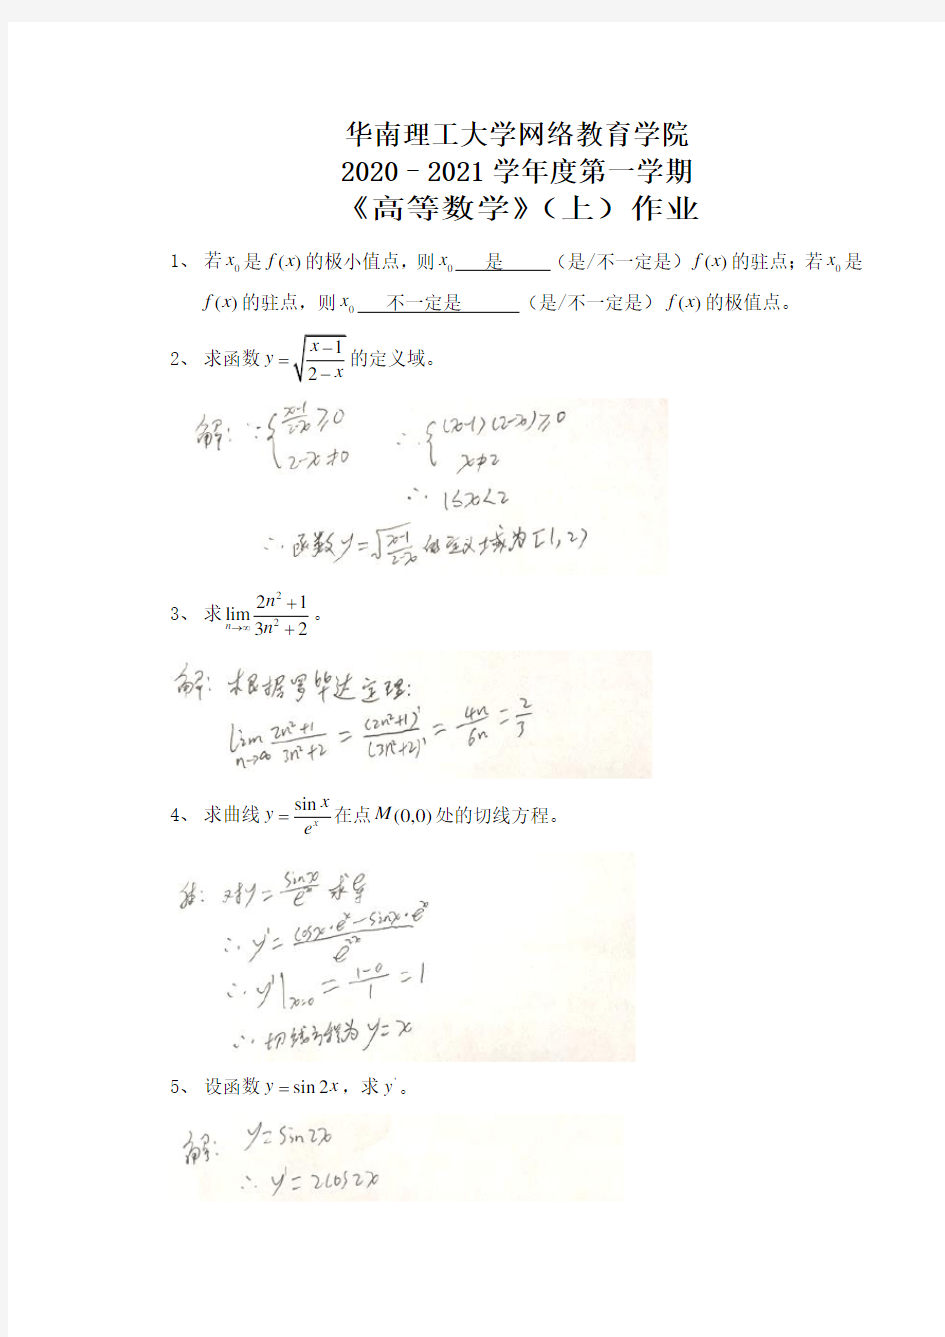 华南理工大学网络教育学院
2020–2021学年度第一学期
《高等数学》（上）作业
1、 若x₀是f(x)的极小值点，则x₀ 是 （是/不一定是）f(x)的驻点；若x₀是
f(x)的驻点，则x₀ 不一定是 （是/不一定是）f(x)的极值点。
2、 求函数y=√((x−1)/(2−x))的定义域。
解：∵{(x-1)/(2-x)≥0 ∴{(x-1)(2-x)≥0
2-x≠0 x≠2
∴1≤x<2
∴函数y=√((x-1)/(2-x))的定义域为[1,2)
3、 求lim n→∞ (2n²+1)/(3n²+2)。
解：根据罗毕达定理：
lim n→∞ (2n²+1)/(3n²+2)=(2n²+1)'/(3n²+2)'=4n/6n=2/3
4、 求曲线y=sin x/eˣ在点M(0,0)处的切线方程。
解：对y=sinx/eˣ求导
∴y'=(cosx·eˣ-sinx·eˣ)/e²ˣ
∴y'|x=0=(1-0)/1=1
∴切线方程为y=x
5、 设函数y=sin 2x，求y'。
解：y=sin2x
∴y'=2cos2x